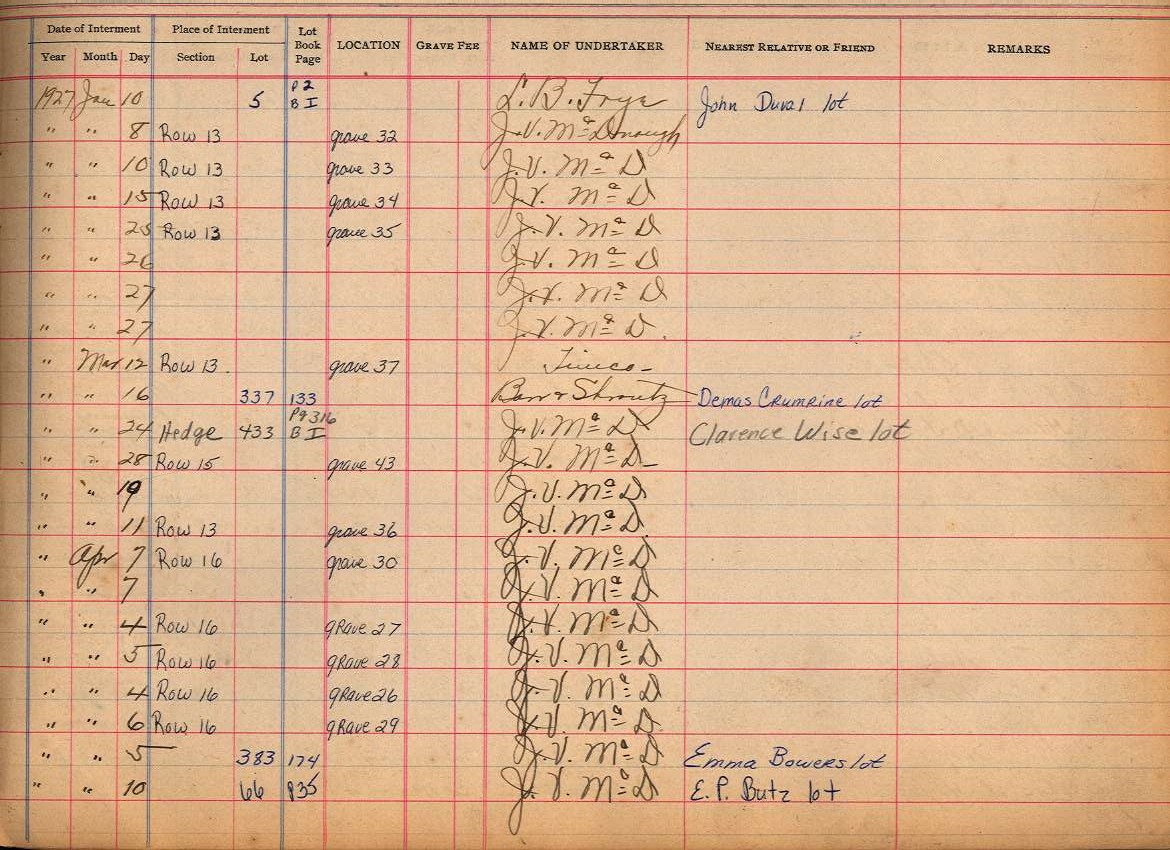 Date of Interment Place of Interment Lot Book Page LOCATION GRAVE FEE NAME OF UNDERTAKER NEAREST RELATIVE OR FRIEND REMARKS
Year Month Day Section Lot
1927 Jan 10 5 P2 B I L. B. Frye John Duval lot
" " 8 Row 13 grave 32 J.V. McDonough
" " 10 Row 13 grave 33 J.V. Mc D
" " 15 Row 13 grave 34 J.V. Mc D
" " 25 Row 13 grave 35 J.V. Mc D
" " 26 J.V. Mc D
" " 27 J.V. Mc D
" " 27 J.V. Mc D.
" Mar 12 Row 13. grave 37
" " 16 337 133 Demas Crumrine lot
" " 24 Hedge 433 Pg 316 B I J.V. Mc D Clarence Wise lot
" " 28 Row 15 grave 43 J.V. Mc D
" " 19 J.V. Mc D
" " 11 Row 13 grave 36 J.V. Mc D
" Apr 7 Row 16 grave 30 J.V. Mc D
" " 7 J.V. Mc D
" " 4 Row 16 grave 27 J.V. Mc D
" " 5 Row 16 grave 28 J.V. Mc D
" " 4 Row 16 grave 26 J.V. Mc D
" " 6 Row 16 grave 29 J.V. Mc D
" " 5 383 174 J.V. Mc D Emma Bowers lot
" " 10 66 P35 J.V. Mc D E.P. Butz lot